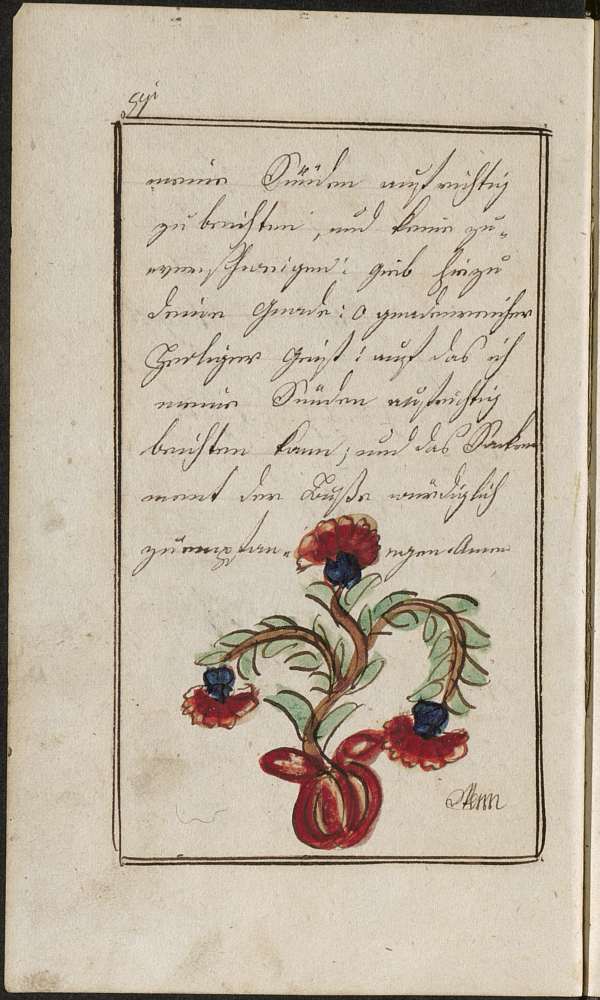 meine Sünden aufrichtig
zu beichten, und keine zu-
verschweigen: gieb hiezu
deine Gnade: O gnadenreicher
Heiliger Geist: auf das ich
meine Sünden aufrichtig
beichten kann; und das Sackra
ment der Buße würdiglich
zu empfan- ngen Amen